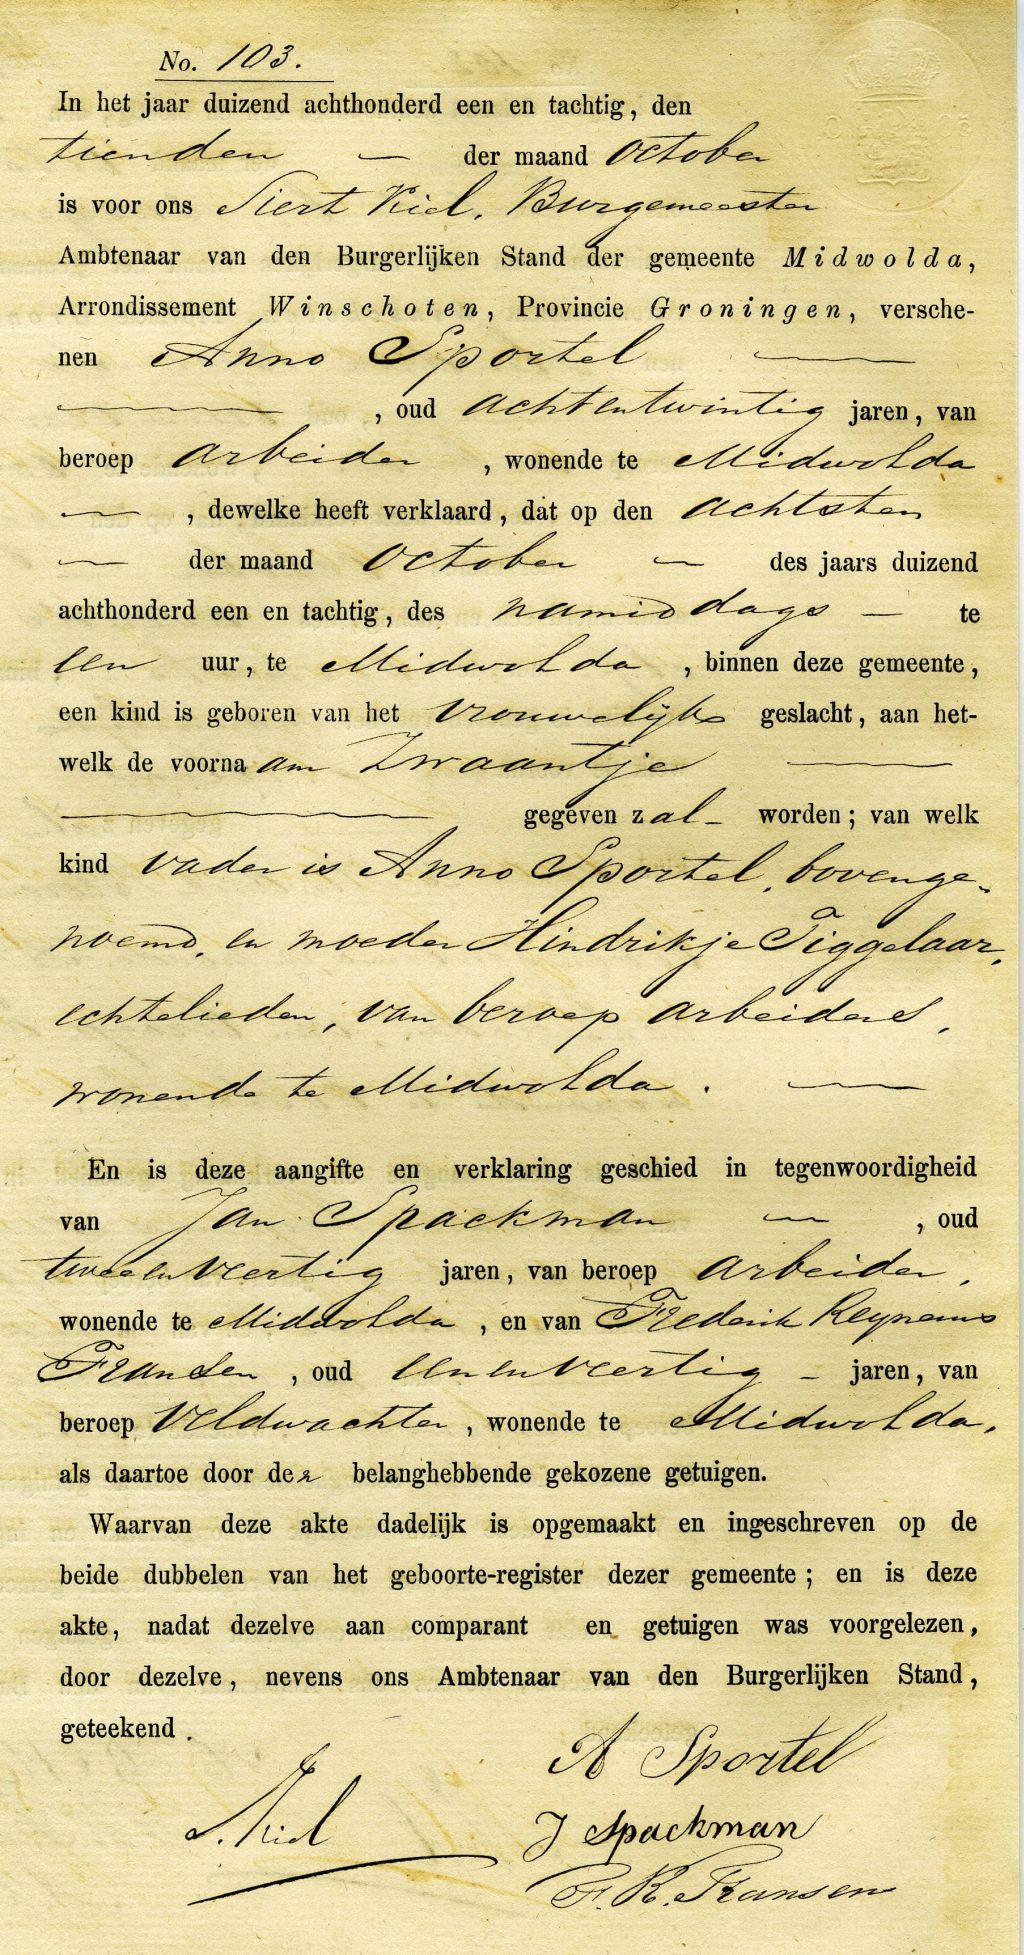 No. 103.
In het jaar duizend achthonderd een en tachtig, den
tienden — der maand October
is voor ons Siert Kiel, Burgemeester
Ambtenaar van den Burgerlijken Stand der gemeente Midwolda,
Arrondissement Winschoten, Provincie Groningen, versche-
nen Anno Sportel —
— , oud achtentwintig jaren, van
beroep arbeider , wonende te Midwolda
— , dewelke heeft verklaard, dat op den achtsten
— der maand October — des jaars duizend
achthonderd een en tachtig, des namiddags — te
een uur, te Midwolda , binnen deze gemeente,
een kind is geboren van het vrouwelijke geslacht, aan het-
welk de voornaam Zwaantje —
— gegeven zal — worden; van welk
kind vader is Anno Sportel, bovenge-
noemd, en moeder Hindrikje Tiggelaar,
echtelieden, van beroep arbeiders,
wonende te Midwolda. —
En is deze aangifte en verklaring geschied in tegenwoordigheid
van Jan Spackman — , oud
tweeenveertig jaren, van beroep arbeider,
wonende te Midwolda , en van Frederik
Fransen , oud eenenveertig — jaren, van
beroep veldwachter , wonende te Midwolda,
als daartoe door der belanghebbende gekozene getuigen.
Waarvan deze akte dadelijk is opgemaakt en ingeschreven op de
beide dubbelen van het geboorte-register dezer gemeente; en is deze
akte, nadat dezelve aan comparant en getuigen was voorgelezen,
door dezelve, nevens ons Ambtenaar van den Burgerlijken Stand,
geteekend.
A Sportel
S. Kiel
J Spackman
F. R. Fransen